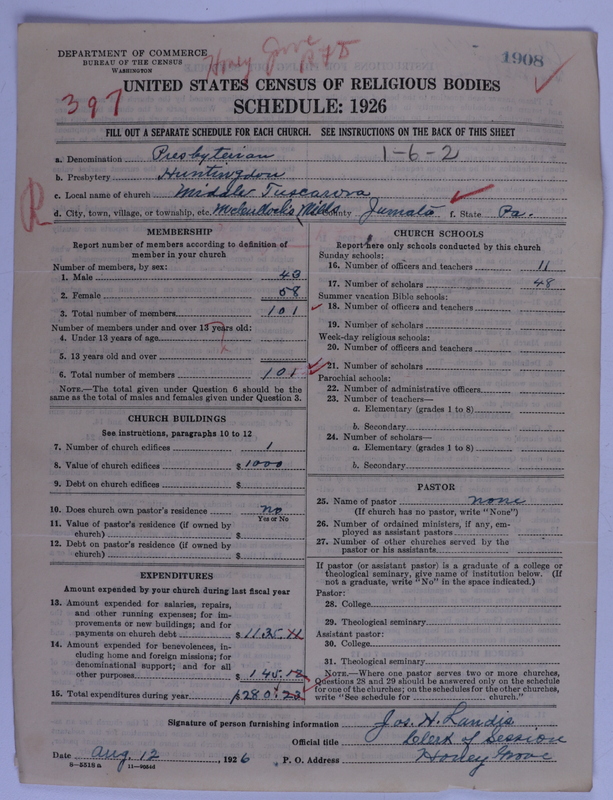 DEPARTMENT OF COMMERCE
BUREAU OF THE CENSUS
WASHINGTON
Honey Grove
1908
397
UNITED STATES CENSUS OF RELIGIOUS BODIES
SCHEDULE: 1926
FILL OUT A SEPARATE SCHEDULE FOR EACH CHURCH. SEE INSTRUCTIONS ON THE BACK OF THIS SHEET
a. Denomination Presbyterian 1-6-2
b. Presbytery Huntingdon
c. Local name of church Middle Tuscarora
R
d. City, town, village, or township, etc. McCullochs Mills County Juniata f. State Pa.
MEMBERSHIP
Report number of members according to definition of
member in your church
Number of members, by sex:
1. Male 43
2. Female 58
3. Total number of members 101
Number of members under and over 13 years old:
4. Under 13 years of age
5. 13 years old and over
6. Total number of members 101
NOTE.—The total given under Question 6 should be
same as the total of males and females given under Question 3.
CHURCH BUILDINGS
See instructions, paragraphs 10 to 12
7. Number of church edifices 1
8. Value of church edifices $ 1000
9. Debt on church edifices $
10. Does church own pastor's residence no
Yes or No
11. Value of pastor's residence (if owned by
church) $
12. Debt on pastor's residence (if owned by
church) $
EXPENDITURES
Amount expended by your church during last fiscal year
13. Amount expended for salaries, repairs,
and other running expenses; for im-
provements or new buildings; and for
payments on church debt $ 1135.
14. Amount expended for benevolences, in-
cluding home and foreign missions; for
denominational support; and for all
other purposes $ 145.
15. Total expenditures during year 1280.22
CHURCH SCHOOLS
Report here only schools conducted by this church
Sunday schools:
16. Number of officers and teachers 11
17. Number of scholars 48
Summer vacation Bible schools:
18. Number of officers and teachers
19. Number of scholars
Week-day religious schools:
20. Number of officers and teachers
21. Number of scholars
Parochial schools:
22. Number of administrative officers
23. Number of teachers—
a. Elementary (grades 1 to 8)
b. Secondary
24. Number of scholars—
a. Elementary (grades 1 to 8)
b. Secondary
PASTOR
25. Name of pastor none
(If church has no pastor, write "None")
26. Number of ordained ministers, if any, em-
ployed as assistant pastors
27. Number of other churches served by the
pastor or his assistants
If pastor (or assistant pastor) is a graduate of a college or
theological seminary, give name of institution below. (If
not a graduate, write "No" in the space indicated.)
Pastor:
28. College
29. Theological seminary
Assistant pastor:
30. College
31. Theological seminary
NOTE.—Where one pastor serves two or more churches,
Questions 28 and 29 should be answered only on the schedule
for one of the churches; on the schedules for the other churches,
write "See schedule for church."
Signature of person furnishing information Jos. H. Landis
Official title Clerk of Session
Date Aug. 12, 1926 P. O. Address Honey Grove
8-5518a